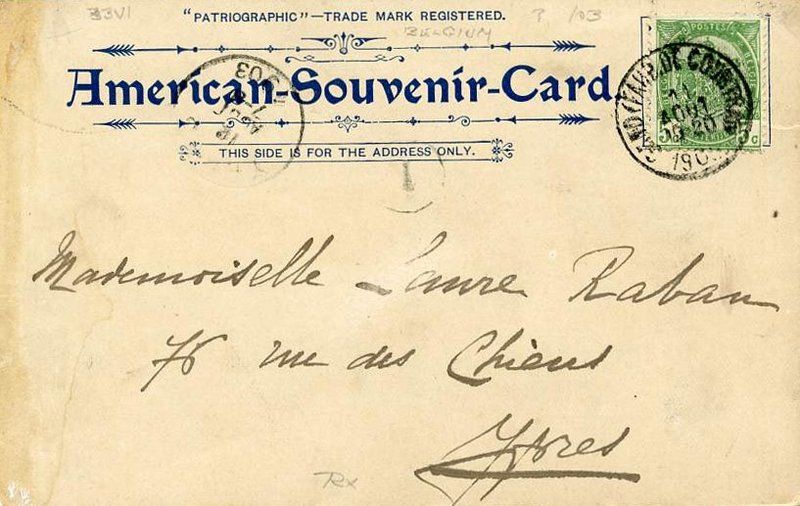 33VI
"PATRIOGRAPHIC"—TRADE MARK REGISTERED.
? /03
BELGIUM
American-Souvenir-Card.
THIS SIDE IS FOR THE ADDRESS ONLY.
POSTES
11
AOUT
20
190
5 c
1
Mademoiselle Laure Raban
76 rue des Chiens
Ypres
Rx